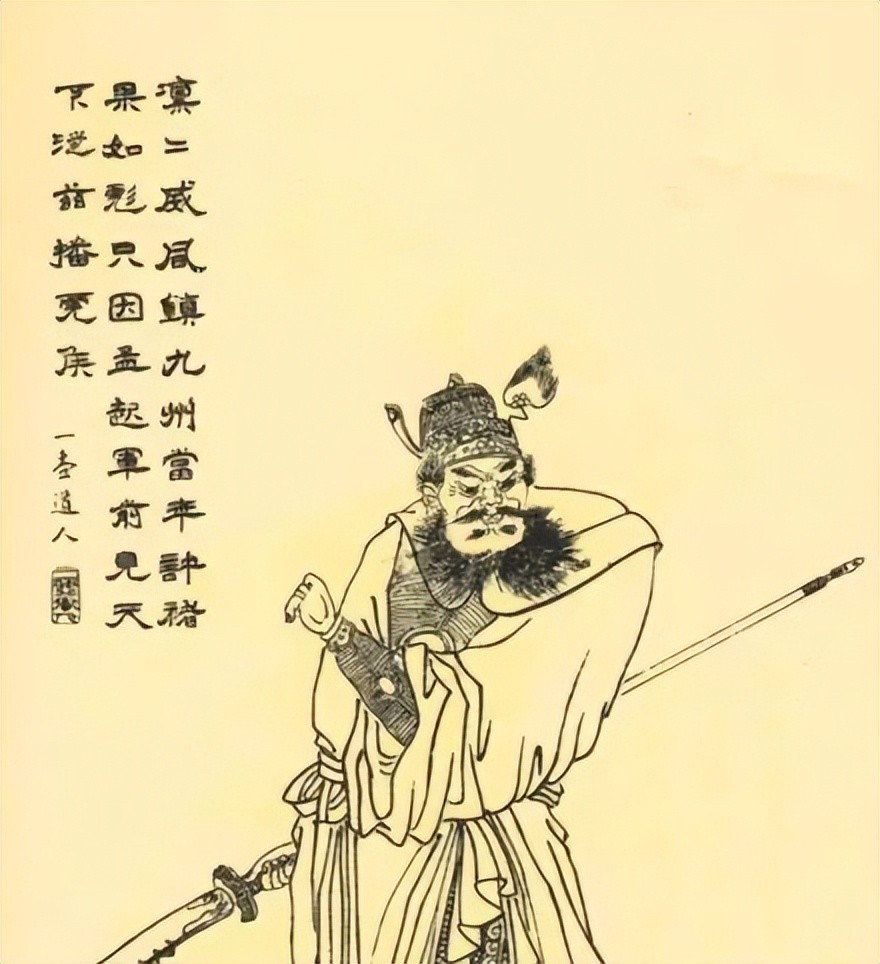 凜二威風鎮九州當年許褚
果如彪只因孟起軍前見天
下播虎侯
一壺道人